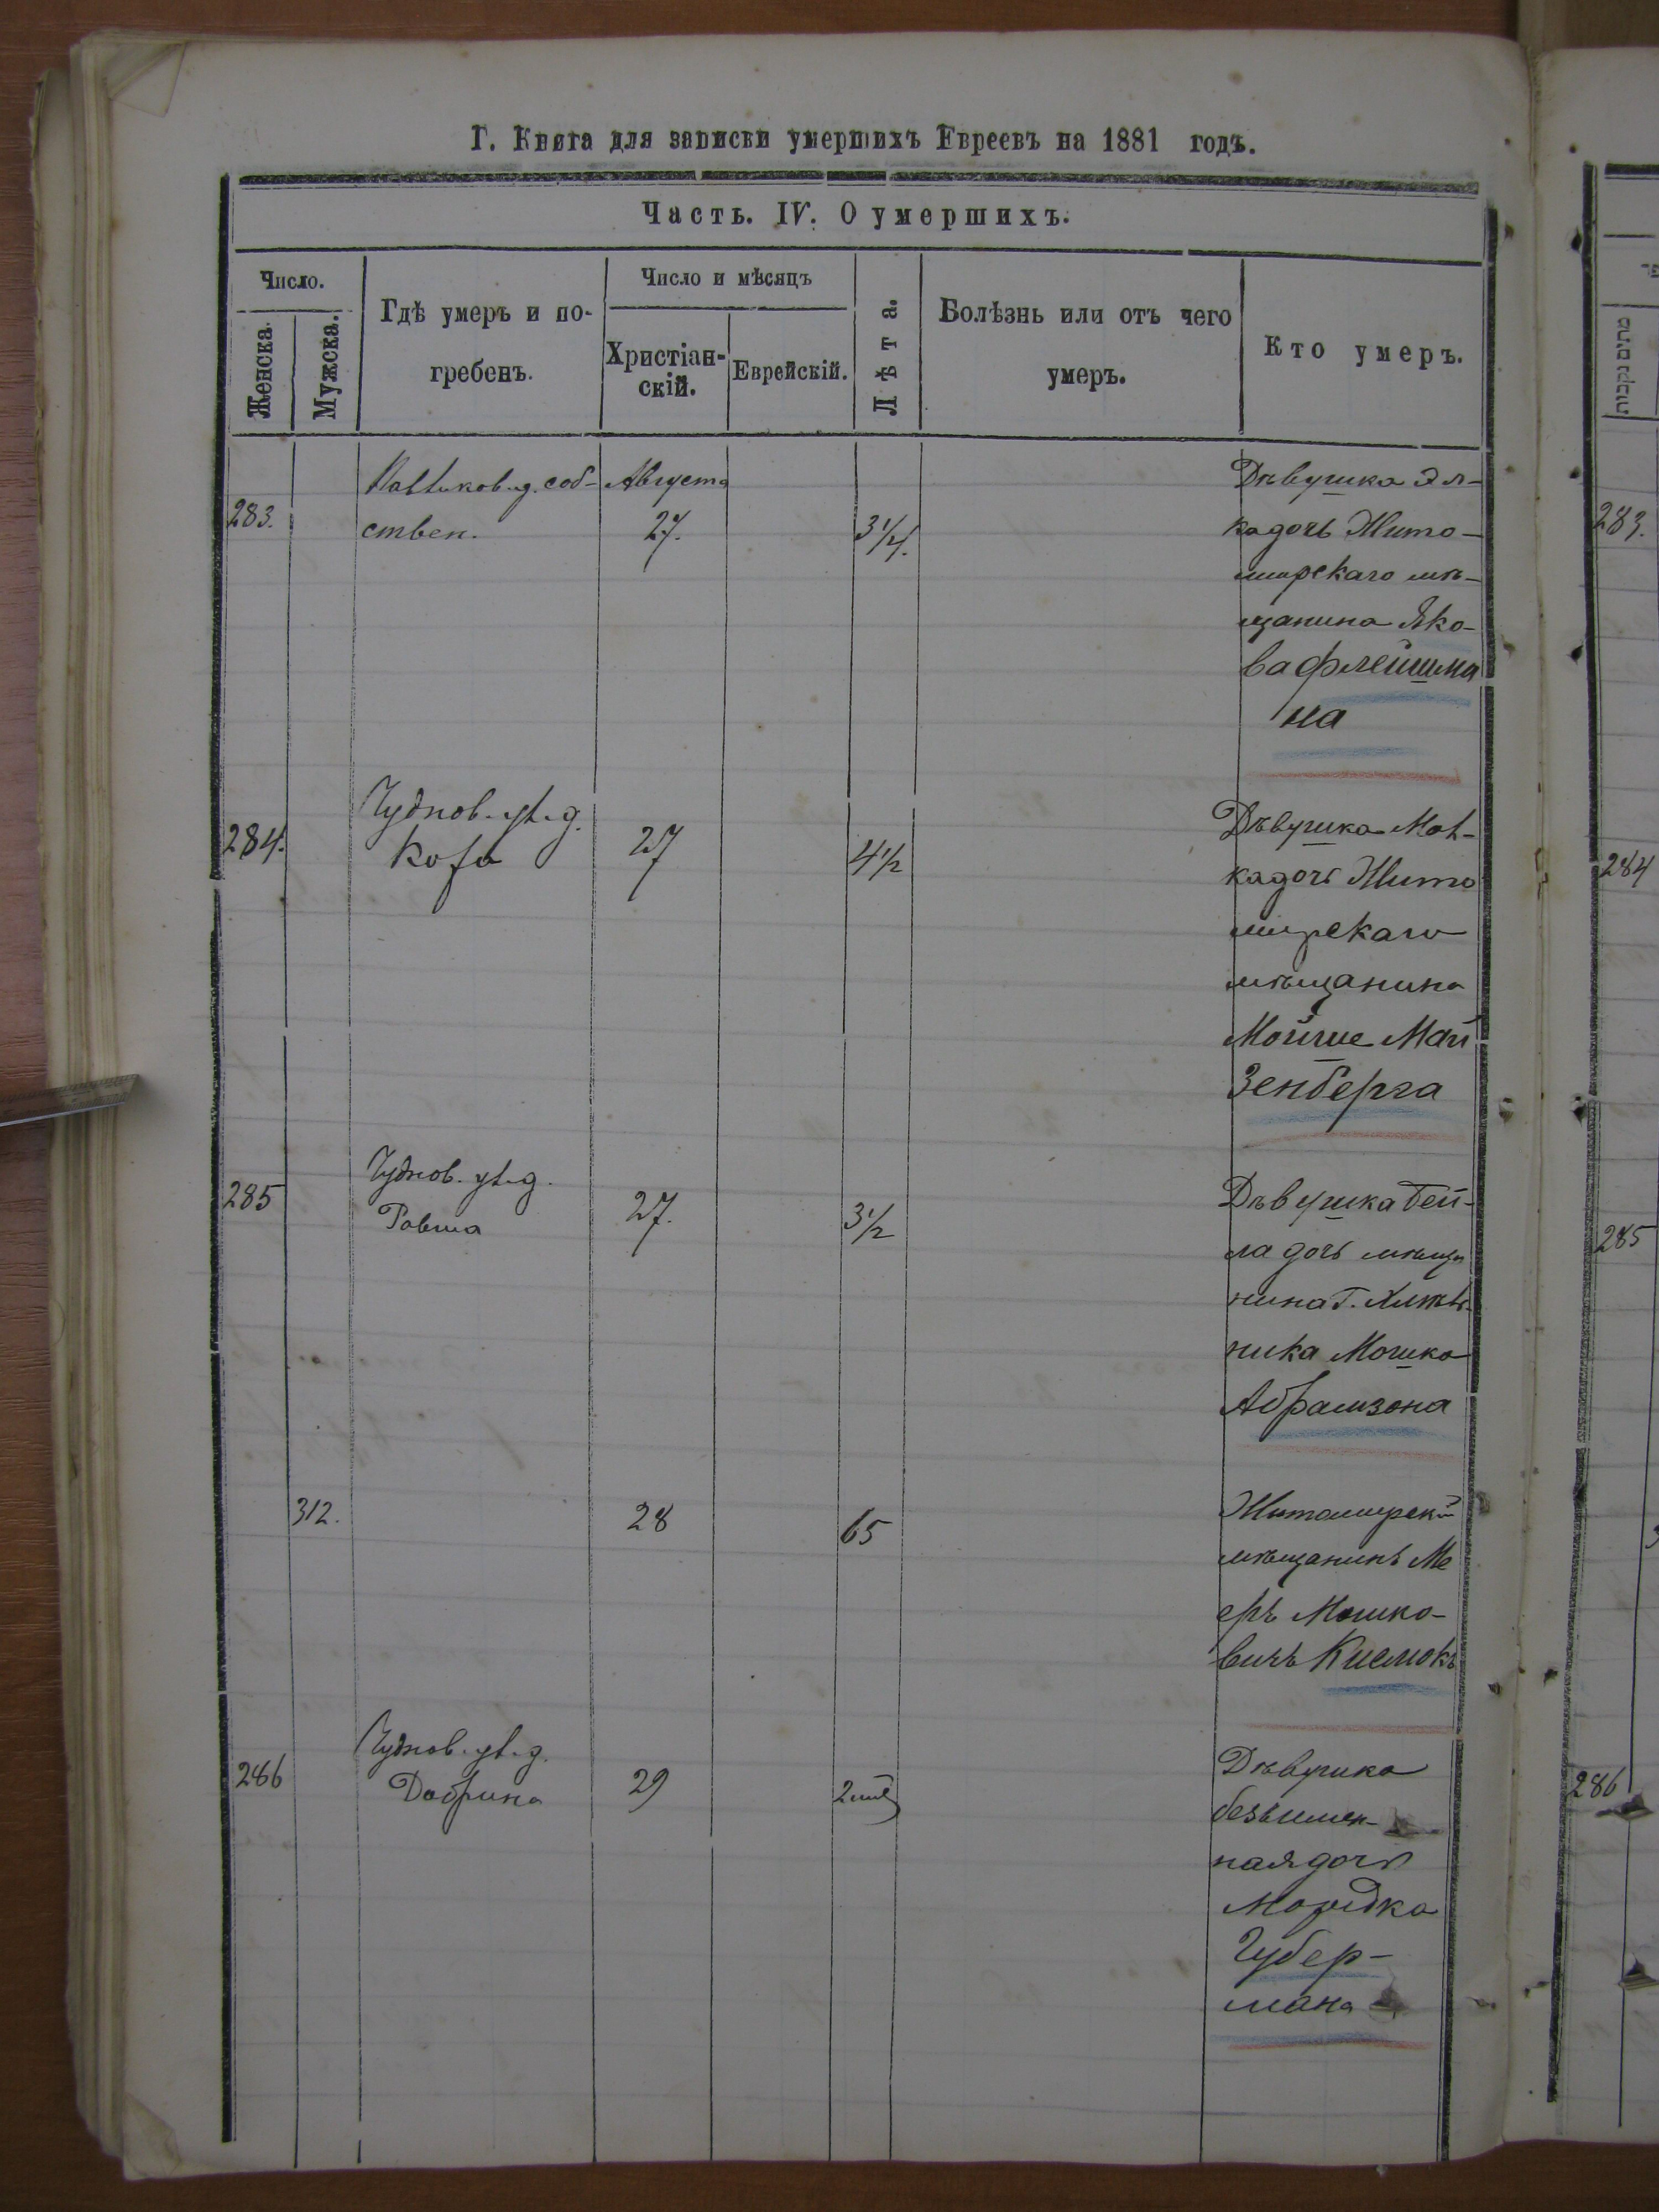 Г. Книга для записки умершихъ Евреевъ на 1881 годъ.
Часть. IV. О умершихъ.
Число.
Женска.
Мужска.
Гдѣ умеръ и по-
гребенъ.
Число и мѣсяцъ
Христіан-
скій.
Еврейскій.
Лѣта.
Болѣзнь или отъ чего
умеръ.
Кто умеръ.
מתים נקבות
283.
соб-
ствен.
Августа
27.
3 1/4.
Дѣвушка Эл-
ка дочь Жито-
мирскаго мѣ-
щанина Яко-
ва Флейшма
на
283.
284.
Чуднов. ул. д.
27
4 1/2
Дѣвушка
ка дочь Жито
мирскаго
мѣщанина
Мойше Май
зенберга
284
285
Чуднов. ул. д.
27.
3 1/2
Дѣвушка Бей-
ла дочь мѣща
нина г.
ника Мошко
Абрамзона
285
312.
28
65
Житомирскій
мѣщанинъ Ме
еръ Мошко-
вичъ
286
Чуднов. ул. д.
Добрина
29
Дѣвушка
безъимен-
ная дочь
Мордка
Губер-
мана
286